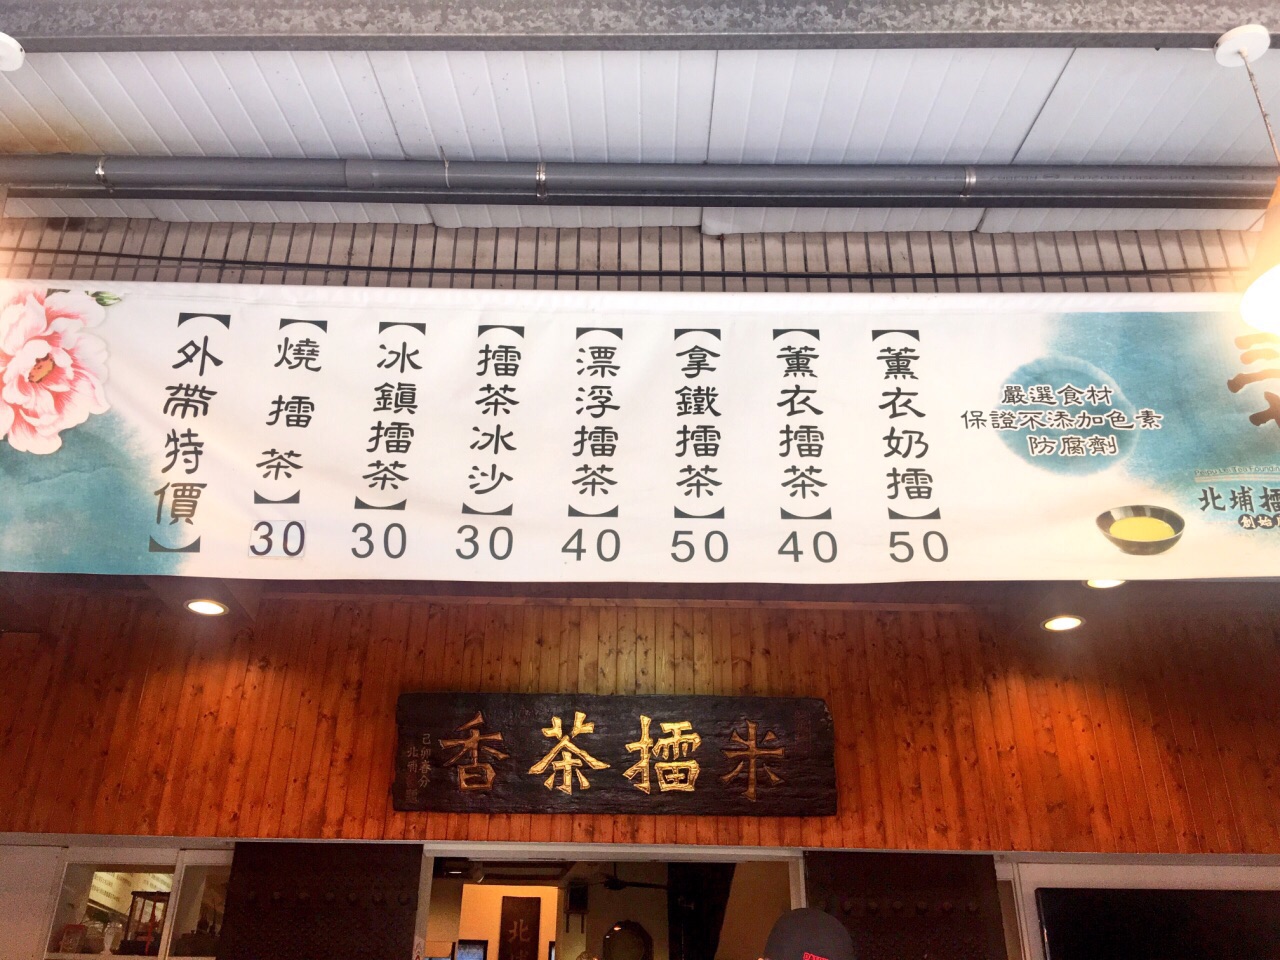 【外帶特價】
【燒擂茶】30
【冰鎮擂茶】30
【擂茶冰沙】30
【漂浮擂茶】40
【拿鐵擂茶】50
【薰衣擂茶】40
【薰衣奶擂】50
嚴選食材
保證不添加色素
防腐劑
北埔擂
創始
米擂茶香
己卯春分
北